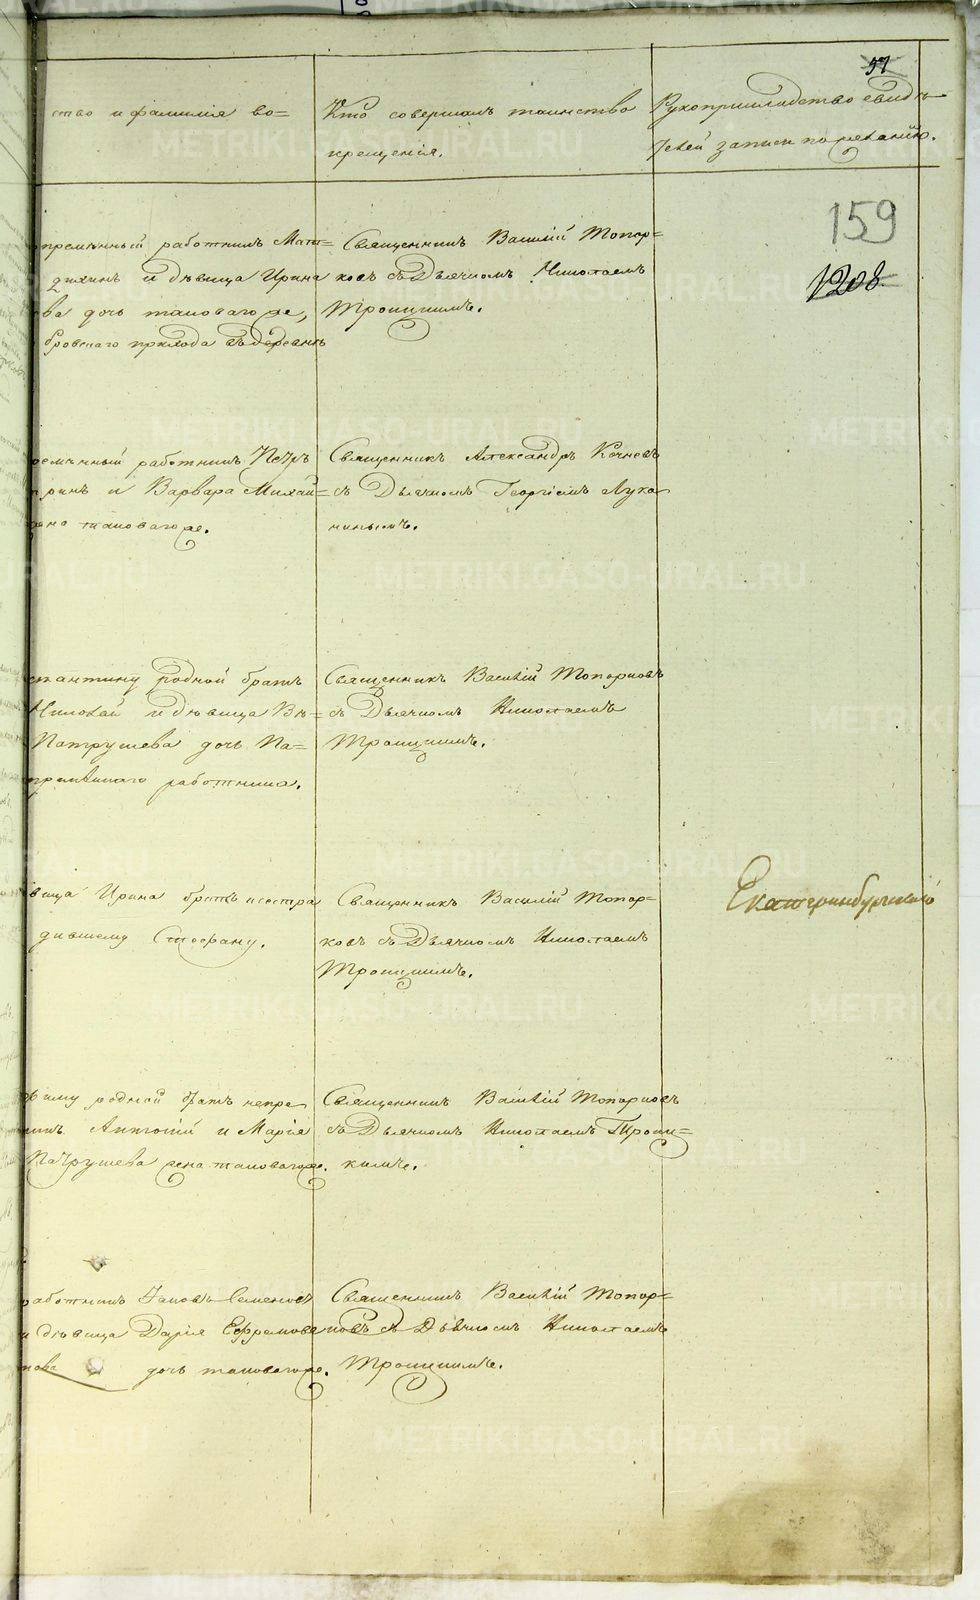 57
ство и фамилія во=
Кто совершалъ таинство
крещенія.
Рукоприкладство свидѣ=
телей записи по желанію.
159
1208
непремѣнный работникъ Мат=
и дѣвица Ирина
ва дочь таковагоже,
бровскаго прихода въ деревнѣ
Священникъ Василій Топор=
ковъ съ Дьячкомъ Николаемъ
Троицкимъ.
ремѣнный работникъ Петръ
и Варвара Михай=
жена таковагоже.
Священникъ Александръ Кочневъ
съ Дьячкомъ Георгіемъ Лука
нинымъ.
стантину родной братъ
Николай и дѣвица Вѣ=
Патрушева дочь На=
премѣннаго работника.
Священникъ Василій Топорковъ
съ Дьячкомъ Николаемъ
Троицкимъ.
вица Ирина братъ и сестра
дившему Стефану.
Священникъ Василій Топор=
ковъ съ Дьячкомъ Николаемъ
Троицкимъ.
Екатеринбургскаго
родной братъ непре
Антоній и Марія
Патрушева жена таковагоже.
Священникъ Василій Топорковъ
съ Дьячкомъ Николаемъ Троиц=
кимъ.
работникъ Іаковъ Семеновъ
и дѣвица Дарія Ефремова
това дочь таковагоже.
Священникъ Василій Топор=
ковъ съ Дьячкомъ Николаемъ
Троицкимъ.
METRIKI.GASO-URAL.RU